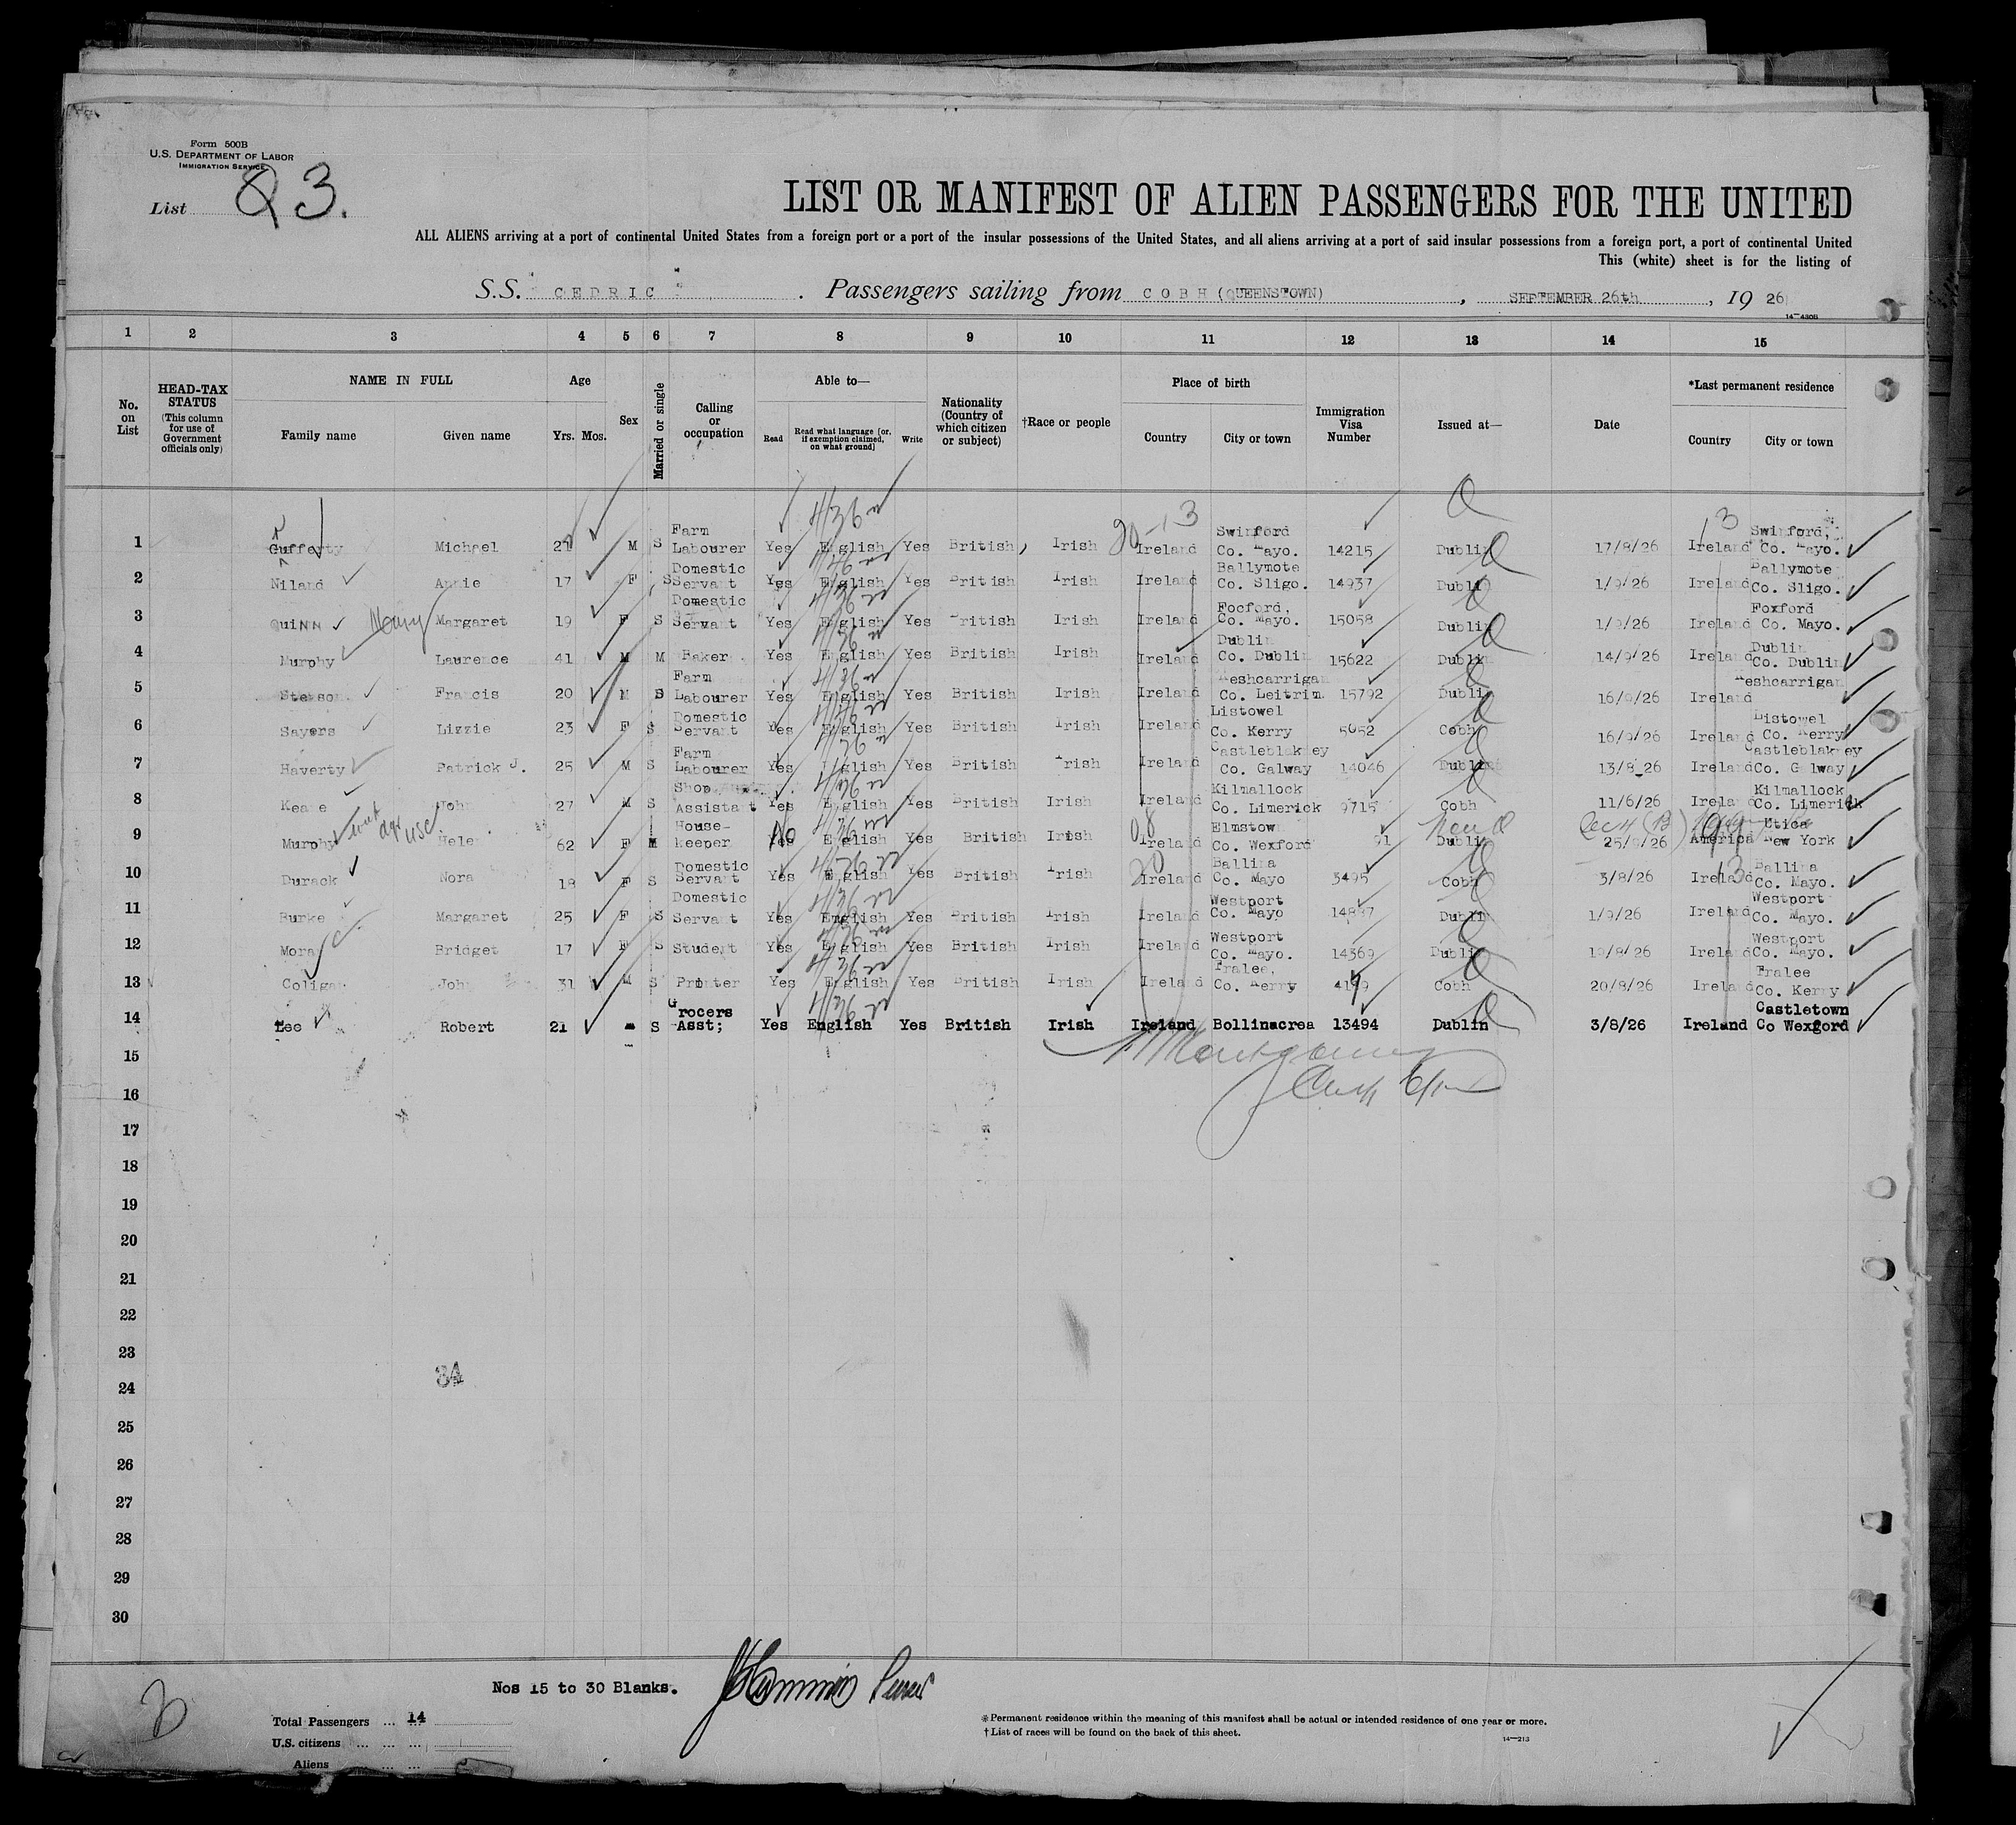 Form 500B
U.S. DEPARTMENT OF LABOR
IMMIGRATION SERVICE
List Q3.
LIST OR MANIFEST OF ALIEN PASSENGERS FOR THE UNITED
ALL ALIENS arriving at a port of continental United States from a foreign port or a port of the insular possessions of the United States, and all aliens arriving at a port of said insular possessions from a foreign port, a port of continental United
This (white) sheet is for the listing of
S.S. " CEDRIC " . Passengers sailing from COBH (QUEENSTOWN) , SEPTEMBER 26th , 19 26
14—430B
1 2 3 4 5 6 7 8 9 10 11 12 13 14 15
No. on List
HEAD-TAX STATUS (This column for use of Government officials only)
NAME IN FULL
Family name Given name
Age
Yrs. Mos.
Sex
Married or single
Calling or occupation
Able to—
Read Read what language [or, if exemption claimed, on what ground] Write
Nationality (Country of which citizen or subject)
†Race or people
Place of birth
Country City or town
Immigration Visa Number
Issued at—
Date
*Last permanent residence
Country City or town
1 Gufferty Michael 21 M S Farm Labourer Yes English Yes British Irish Ireland Swinford Co. Mayo. 14215 Dublin 17/8/26 Ireland Swinford, Co. Mayo.
2 Niland Annie 17 F S Domestic Servant Yes English Yes British Irish Ireland Ballymote Co. Sligo. 14937 Dublin 1/9/26 Ireland Ballymote Co. Sligo.
3 QuiNN Mary Margaret 19 F S Domestic Servant Yes English Yes British Irish Ireland Focford, Co. Mayo. 15058 Dublin 1/9/26 Ireland Foxford Co. Mayo.
4 Murphy Laurence 41 M M Baker Yes English Yes British Irish Ireland Dublin Co. Dublin 15622 Dublin 14/9/26 Ireland Dublin Co. Dublin
5 Francis 20 M S Farm Labourer Yes English Yes British Irish Ireland Keshcarrigan Co. Leitrim 15792 Dublin 16/9/26 Ireland Keshcarrigan
6 Sayers Lizzie 23 F S Domestic Servant Yes English Yes British Irish Ireland Listowel Co. Kerry 5052 Cobh 16/9/26 Ireland Listowel Co. Kerry
7 Haverty Patrick J. 25 M S Farm Labourer Yes English Yes British Irish Ireland Castleblakney Co. Galway 14046 Dublin 13/8/26 Ireland Castleblakney Co. Galway
8 Keane John 27 M S Shop Assistant Yes English Yes British Irish Ireland Kilmallock Co. Limerick 9715 Cobh 11/6/26 Ireland Kilmallock Co. Limerick
9 Murphy USC Helen 62 F M House-keeper No Yes English Yes British Irish Ireland Elmstown Co. Wexford 91 Dublin 25/9/26 America Utica New York
10 Durack Nora 18 F S Domestic Servant Yes English Yes British Irish Ireland Ballina Co. Mayo 3495 Cobh 3/8/26 Ireland Ballina Co. Mayo.
11 Burke Margaret 25 F S Domestic Servant Yes English Yes British Irish Ireland Westport Co. Mayo 14887 Dublin 1/9/26 Ireland Westport Co. Mayo.
12 Moran Bridget 17 F S Student Yes English Yes British Irish Ireland Westport Co. Mayo. 14369 Dublin 19/8/26 Ireland Westport Co. Mayo.
13 Coligan John 31 M S Yes English Yes British Irish Ireland Tralee, Co. Kerry Cobh 20/8/26 Ireland Tralee Co. Kerry
14 Lee Robert 21 S Grocers Asst; Yes English Yes British Irish Ireland Bollinacrea 13494 Dublin 3/8/26 Ireland Castletown Co Wexford
15
16
17
18
19
20
21
22
23
24
25
26
27
28
29
30
34
Nos 15 to 30 Blanks.
Total Passengers ... ... 14
U.S. citizens ... ... ...
Aliens ... ... ...
*Permanent residence within the meaning of this manifest shall be actual or intended residence of one year or more.
†List of races will be found on the back of this sheet.
14—213